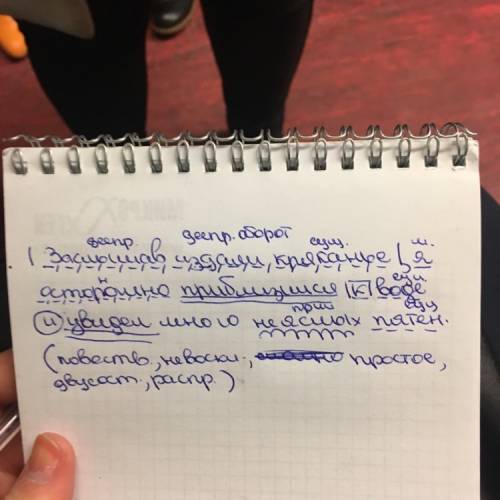 деепр. деепр. оборот сущ. м.
1. Заслышав издали кряканье|, я
н сущ.
осторожно приблизился к воде
прил сущ
и увидел много неясных пятен.
(повеств., невоскл., простое,
двусост., распр.)